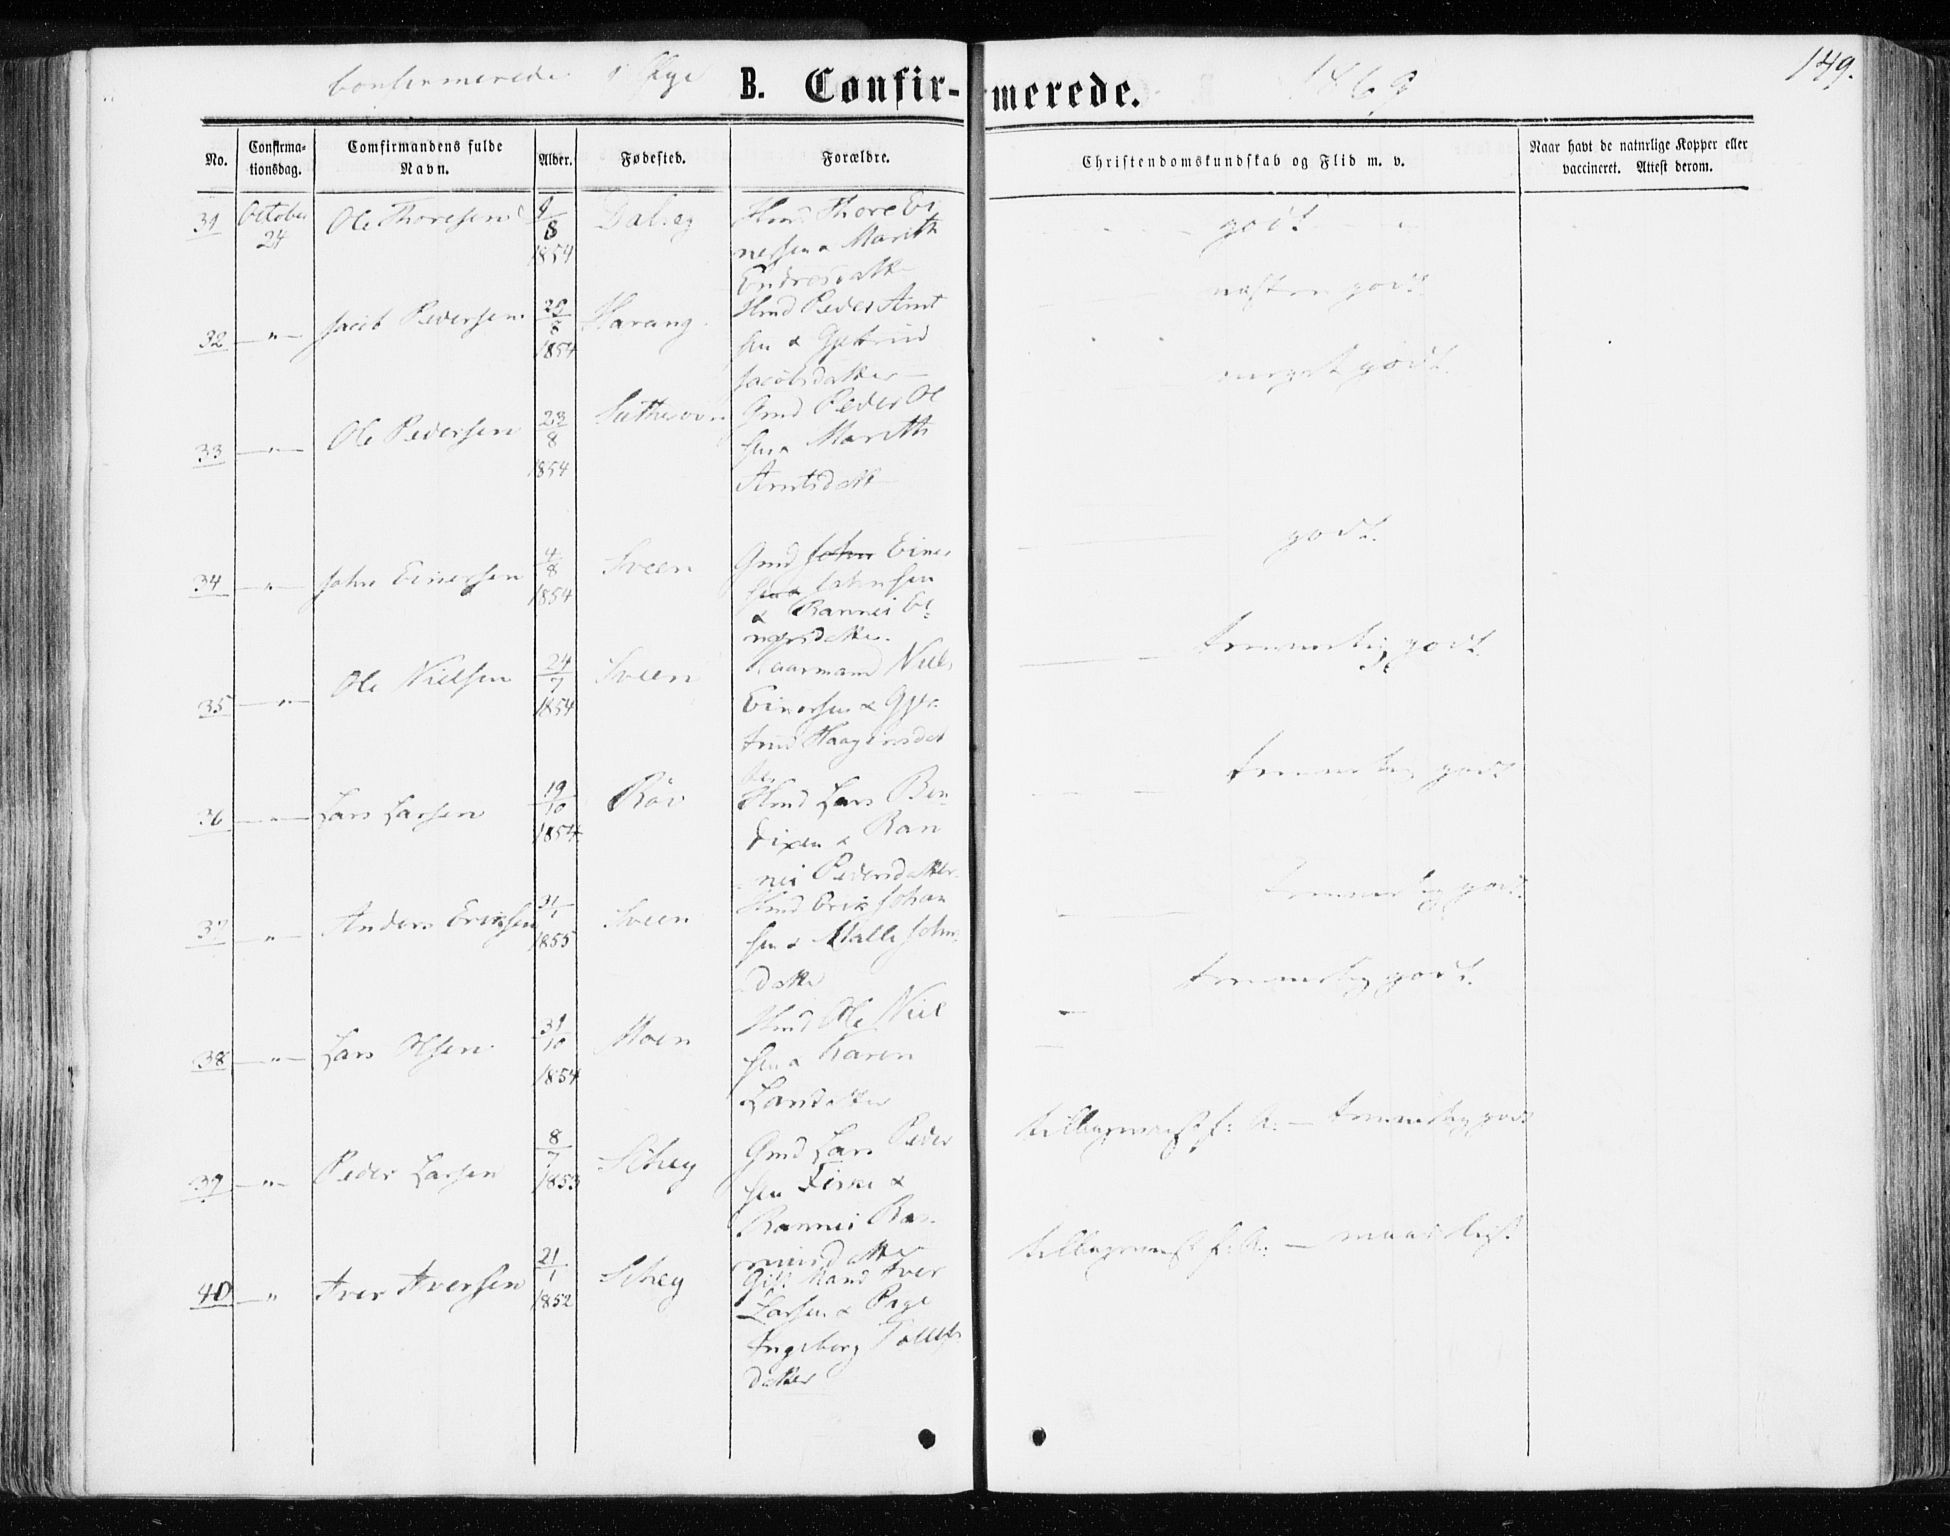 Confirmerede i
B. Confir-merede.
1869
149.
No.
Confirma-
tionsdag.
Comfirmandens fulde
Navn.
Alder.
Fødested.
Forældre.
Christendomskundskab og Flid m. v.
Naar havt de naturlige Kopper eller
vaccineret. Attest derom.
31 October 24 Ole Thoresen 9/8 1854 Dalseg
Hmd. Thore Ei
nersen & Marith
Endresdatt
godt
32 " Jacob Pedersen 1854 Harang
Hmd Peder Arnt
sen & Gjertrud
Jacobsdatter
næsten godt
33 " Ole Pedersen 23/8 1854
Gmd Peder Ol
sen & Marith
Arntsdatt
meget godt.
34 " John Einersen 4/8 1854 Sveen
Gmd John Einer
sen & Johnsen
& Rannei Ei-
nersdatter.
godt.
35 " Ole Nielsen 24/7 1854 Sveen
Kaarmand Niels
Einersen & Gjer-
trud Haagensdat
ter
temmelig godt
36 " Lars Larsen 19/10 1854 Röv
Hmd Lars Ben-
dixen & Ran
nei Pedersdatter
temmelig godt
37 " Anders Eriksen 31/1 1855 Sveen
Hmd Erik Johan
sen & Malli John
datter
temmelig godt
38 " Lars Olsen 31/10 1854 Moen
Hmd Ole Niel
sen & Karen
Larsdatter
temmelig godt.
39 " Peder Larsen 8/7 1853 Schey
Gmd Lars Peder
sen &
Rannei Ras-
musdatter
temmelig godt
40 " Iver Iversen 21/1 1852 Schey
Gift Mand Iver
Larsen & Pige
Ingeborg
datter
maadeligt